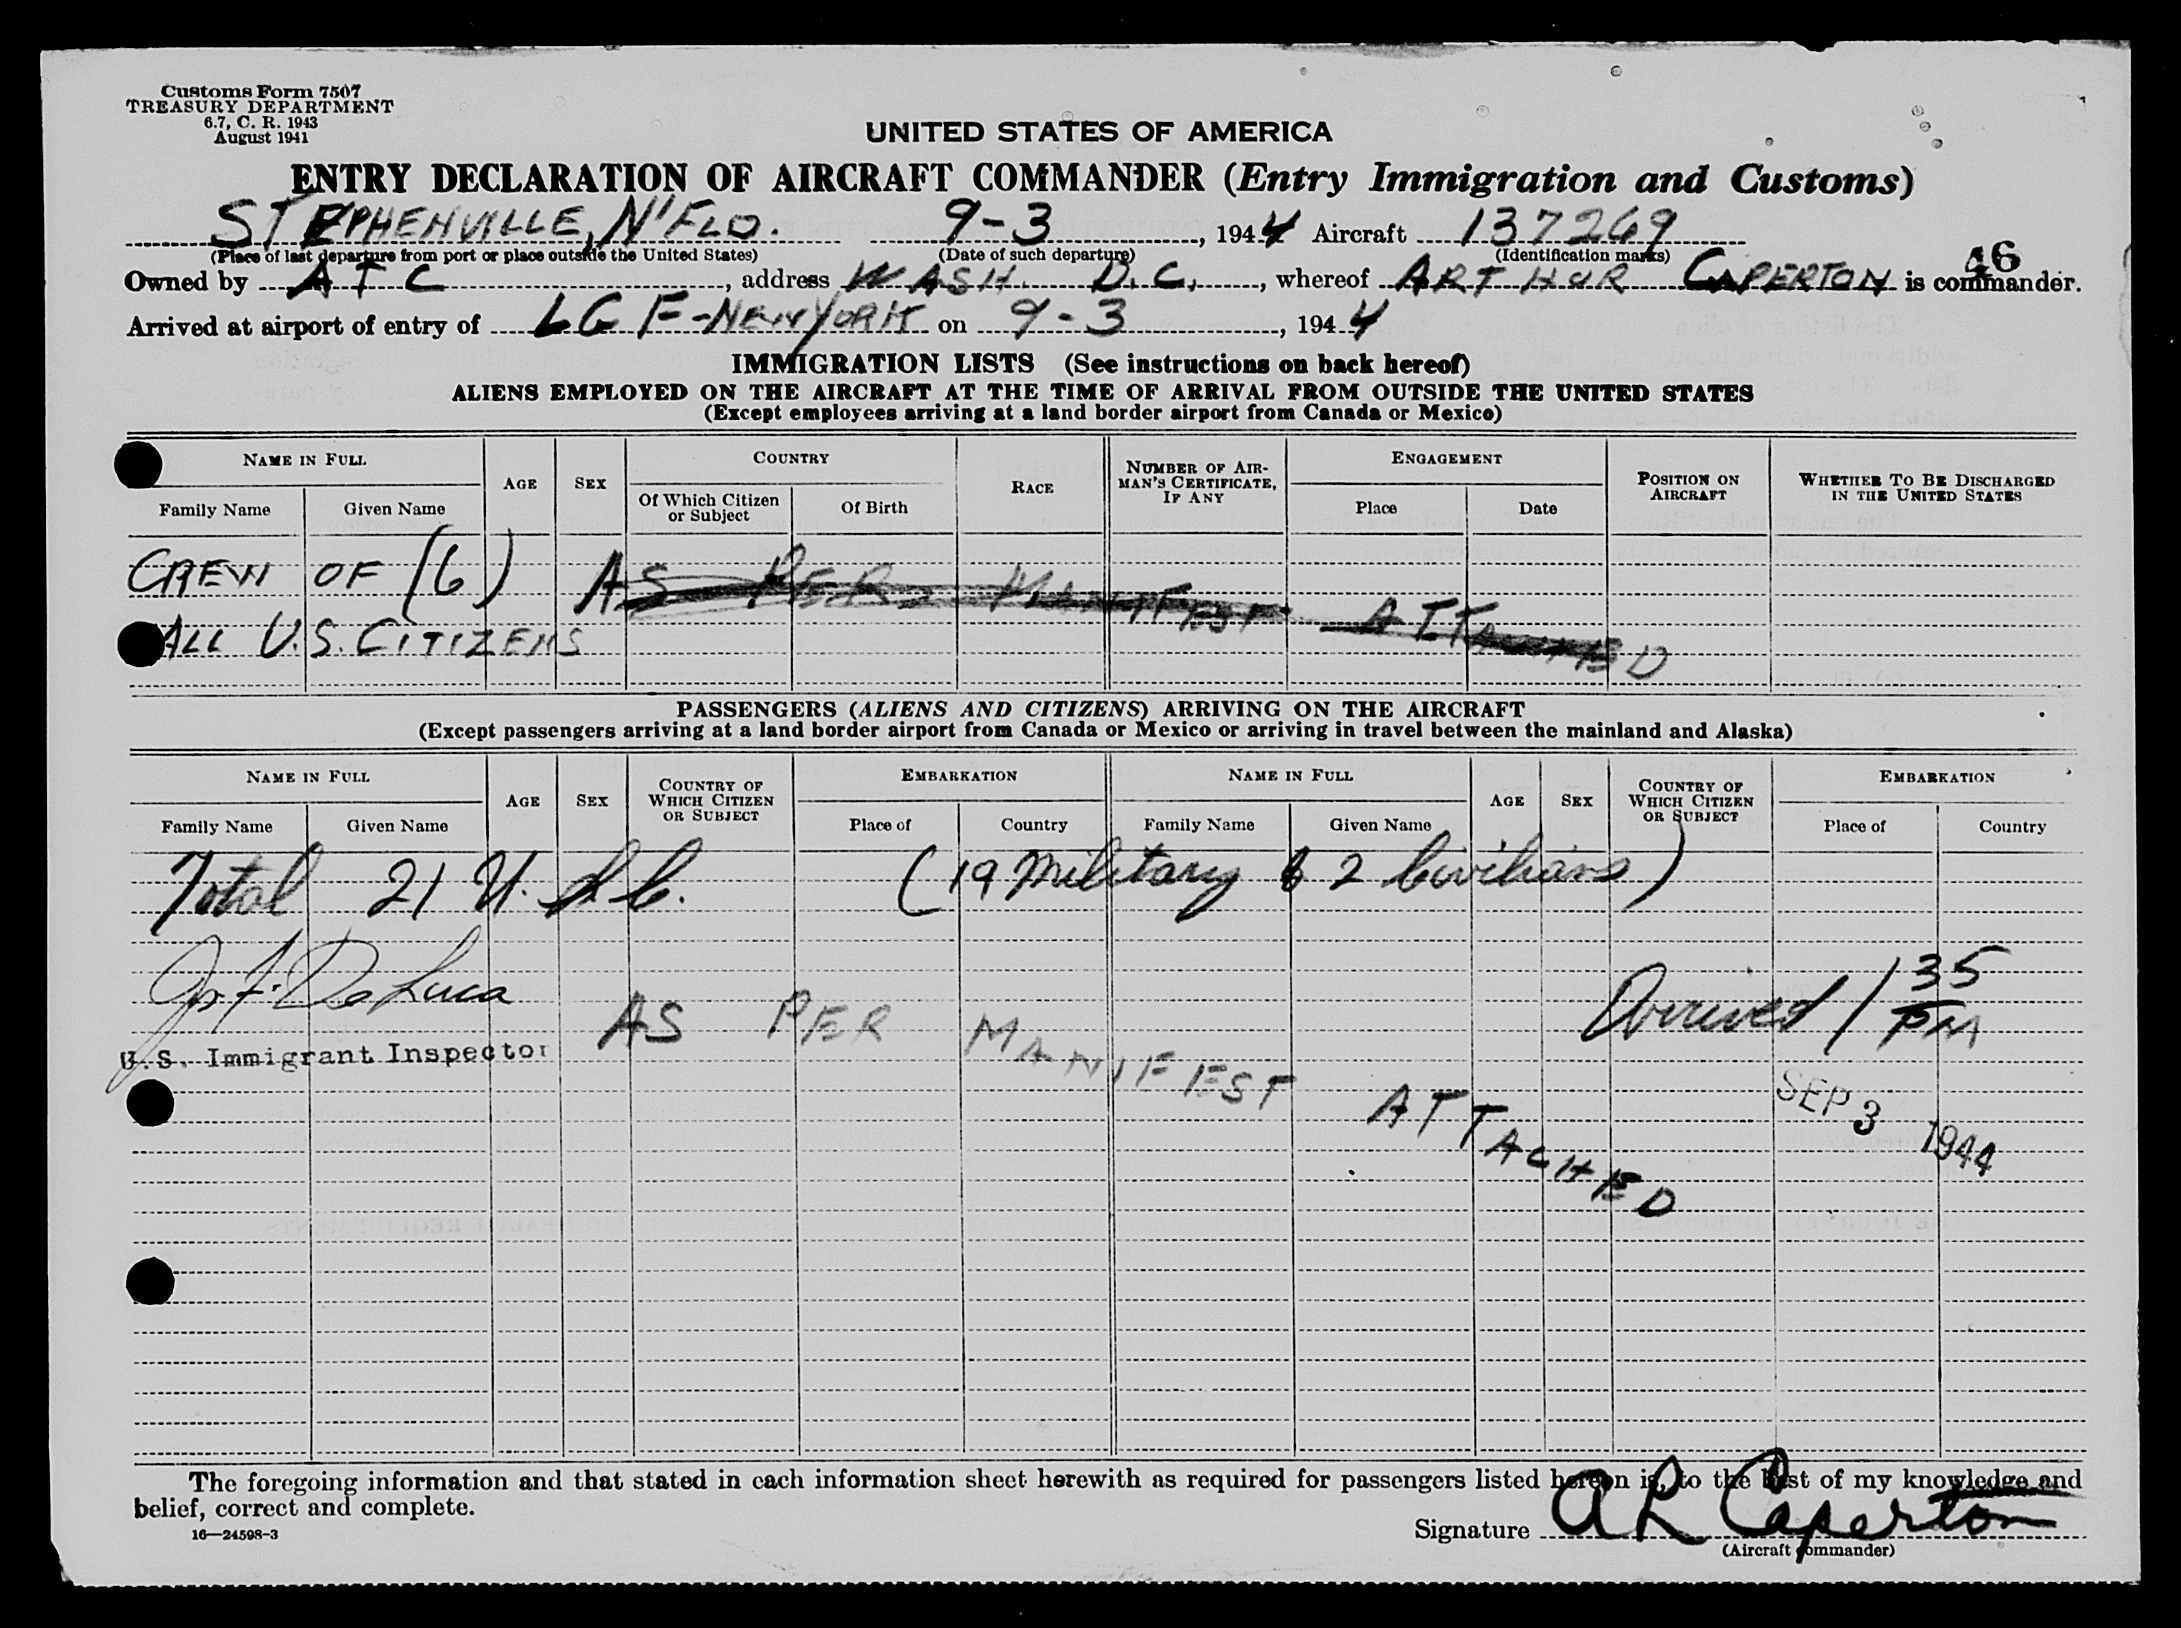 Customs Form 7507
TREASURY DEPARTMENT
6.7, C. R. 1943
August 1941
UNITED STATES OF AMERICA
ENTRY DECLARATION OF AIRCRAFT COMMANDER (Entry Immigration and Customs)
STEPHENVILLE, N'FLD. 9-3, 1944 Aircraft 137269
(Place of last departure from port or place outside the United States) (Date of such departure) (Identification marks)
46
Owned by ATC, address WASH. D.C., whereof ARTHUR CAPERTON is commander.
Arrived at airport of entry of LGF-NEW YORK on 9-3, 1944
IMMIGRATION LISTS (See instructions on back hereof)
ALIENS EMPLOYED ON THE AIRCRAFT AT THE TIME OF ARRIVAL FROM OUTSIDE THE UNITED STATES
(Except employees arriving at a land border airport from Canada or Mexico)
NAME IN FULL AGE SEX COUNTRY RACE NUMBER OF AIRMAN'S CERTIFICATE, IF ANY ENGAGEMENT POSITION ON AIRCRAFT WHETHER TO BE DISCHARGED IN THE UNITED STATES
Family Name Given Name Of Which Citizen or Subject Of Birth Place Date
CREW OF (6) AS PER MANIFEST ATTACHED
ALL U.S. CITIZENS
PASSENGERS (ALIENS AND CITIZENS) ARRIVING ON THE AIRCRAFT
(Except passengers arriving at a land border airport from Canada or Mexico or arriving in travel between the mainland and Alaska)
NAME IN FULL AGE SEX COUNTRY OF WHICH CITIZEN OR SUBJECT EMBARKATION NAME IN FULL AGE SEX COUNTRY OF WHICH CITIZEN OR SUBJECT EMBARKATION
Family Name Given Name Place of Country Family Name Given Name Place of Country
Total 21 U.S.C. (19 Military & 2 Civilians)
Jos. F. DeLuca
Arrived 1 35 PM
U.S. Immigrant Inspector
AS PER MANIFEST ATTACHED
SEP 3 1944
The foregoing information and that stated in each information sheet herewith as required for passengers listed hereon is, to the best of my knowledge and
belief, correct and complete.
16—24598-3
Signature AR Caperton
(Aircraft commander)